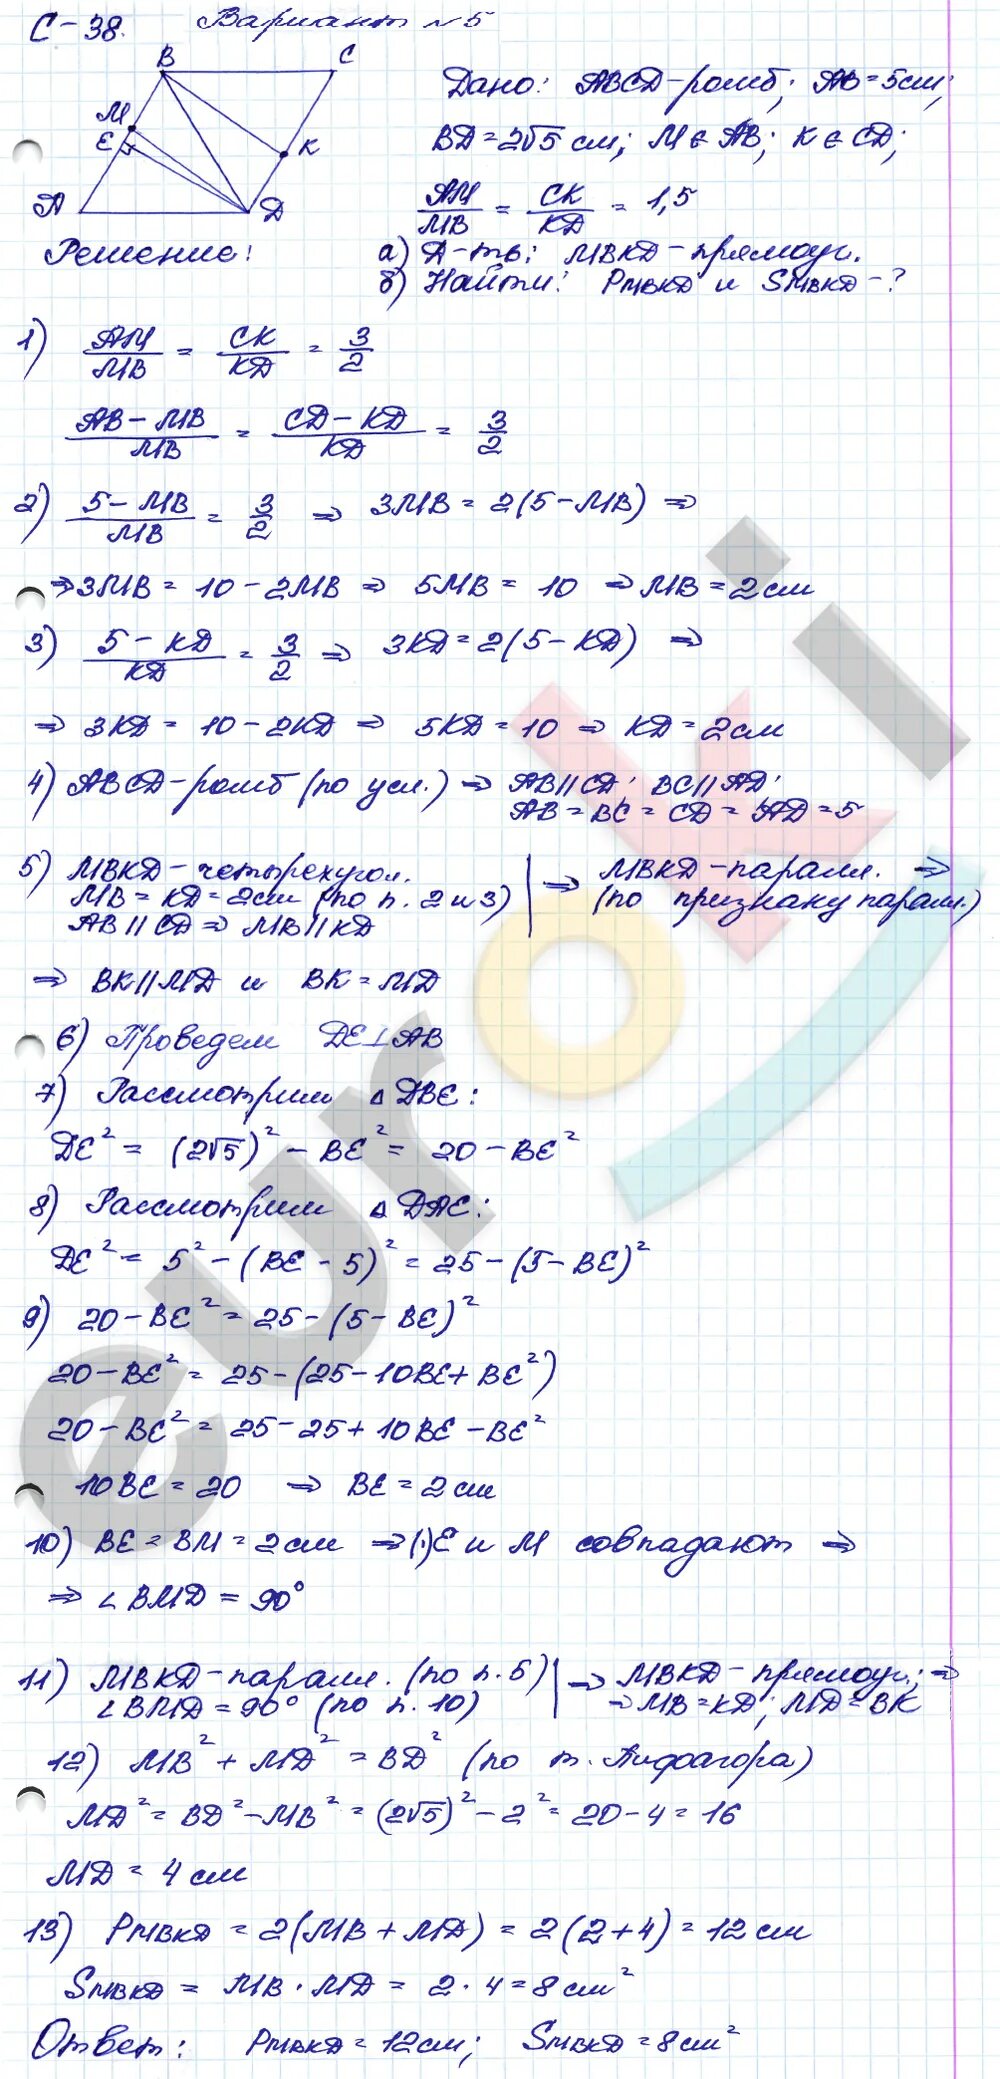 С-38. Вариант №5
B C
M
E K
A D
Дано: ABCD-ромб; AB=5см;
BD=2√5 см; M∈AB; K∈CD;
AM/MB = CK/KD = 1,5
Решение:
а) Д-ть: MBKD-прямоуг.
б) Найти: PMBKD и SMBKD-?
1) AM/MB = CK/KD = 3/2
AB-MB/MB = CD-KD/KD = 3/2
2) 5-MB/MB = 3/2 ⇒ 3MB = 2(5-MB) ⇒
⇒ 3MB = 10-2MB ⇒ 5MB = 10 ⇒ MB = 2см
3) 5-KD/KD = 3/2 ⇒ 3KD = 2(5-KD) ⇒
⇒ 3KD = 10-2KD ⇒ 5KD = 10 ⇒ KD = 2см
4) ABCD-ромб (по усл.) ⇒ AB||CD; BC||AD;
AB = BC = CD = AD = 5
5) MBKD-четырехугол.
MB = KD = 2см (по п. 2 и 3)
AB||CD ⇒ MB||KD
⇒ MBKD-паралл. ⇒
(по признаку паралл.)
⇒ BK||MD и BK = MD
6) Проведем DE⊥AB
7) Рассмотрим △DBE:
DE² = (2√5)² - BE² = 20-BE²
8) Рассмотрим △DAE:
DE² = 5² - (BE-5)² = 25-(5-BE)²
9) 20-BE² = 25-(5-BE)²
20-BE² = 25-(25-10BE+BE²)
20-BE² = 25-25+10BE-BE²
10BE = 20 ⇒ BE = 2см
10) BE = BM = 2см ⇒ (·)E и M совпадают ⇒
⇒ ∠BMD = 90°
11) MBKD-паралл. (по п. 5)
∠BMD = 90° (по п. 10)
⇒ MBKD-прямоуг.; ⇒
⇒ MB = KD; MD = BK
12) MB² + MD² = BD² (по т. Пифагора)
MD² = BD²-MB² = (2√5)²-2² = 20-4 = 16
MD = 4 см
13) PMBKD = 2(MB+MD) = 2(2+4) = 12см
SMBKD = MB·MD = 2·4 = 8см²
Ответ: PMBKD = 12см; SMBKD = 8см²
euroki